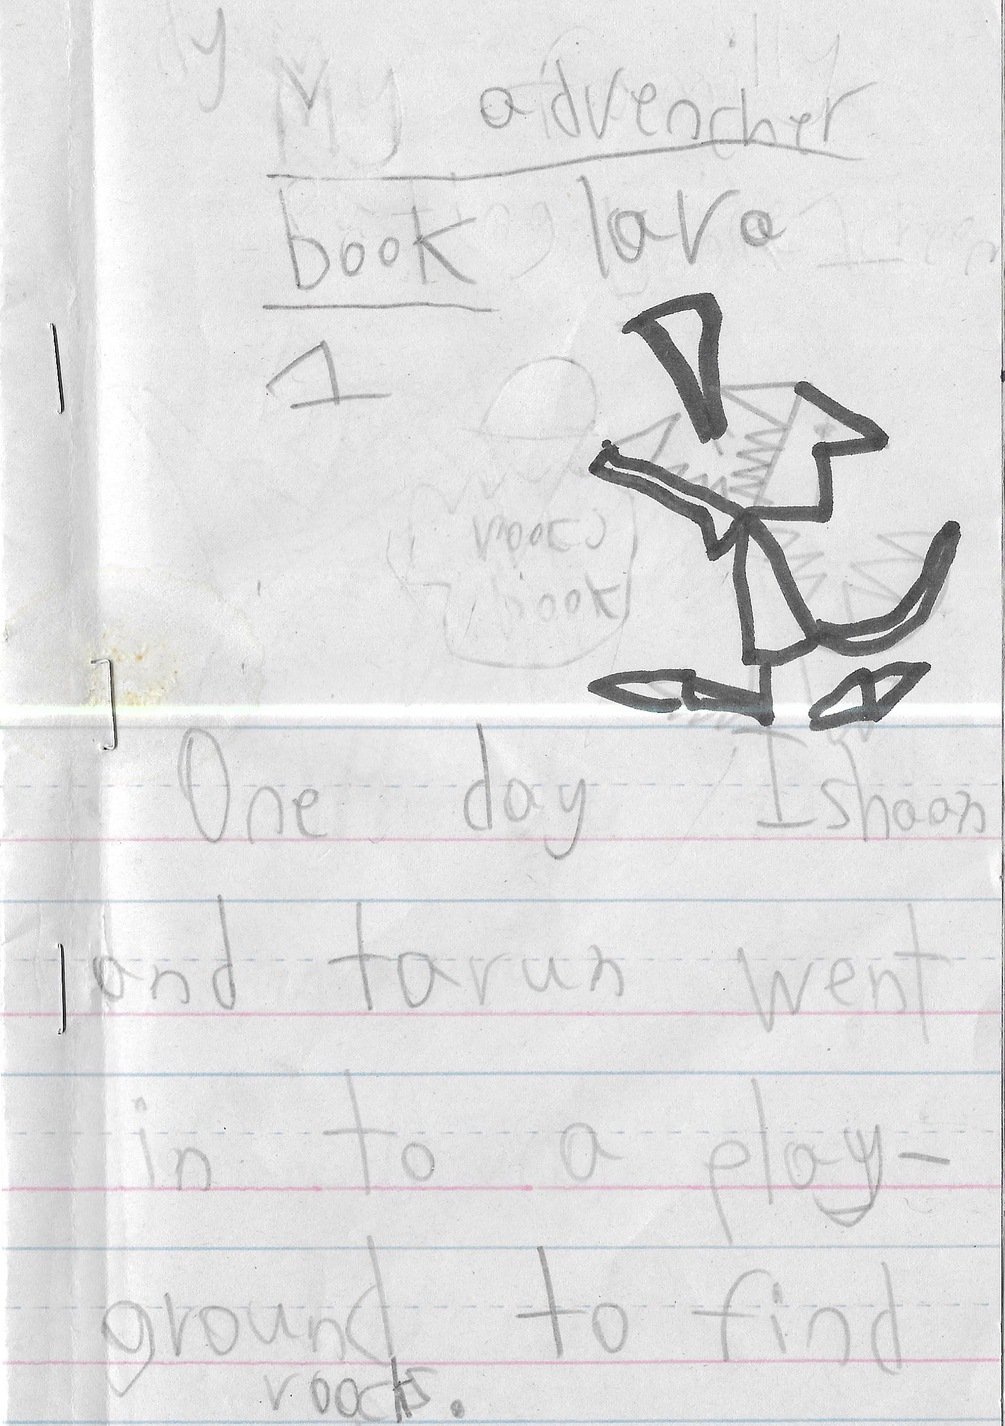 My advencher
book lava
1
roocks
book
One day Ishaan
and tarun went
in to a play-
ground to find
roocks.